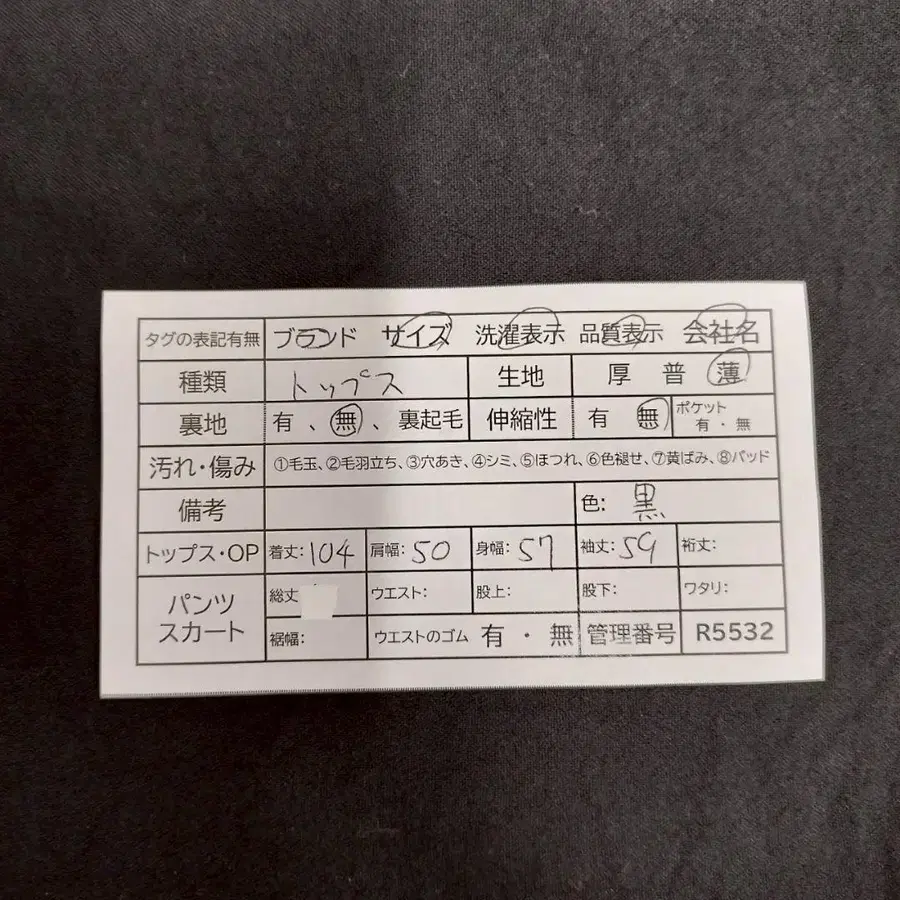 タグの表記有無 ブランド サイズ 洗濯表示 品質表示 会社名
種類 トップス 生地 厚 普 薄
裏地 有 、 無 、 裏起毛 伸縮性 有 無 ポケット 有・無
汚れ・傷み ①毛玉、②毛羽立ち、③穴あき、④シミ、⑤ほつれ、⑥色褪せ、⑦黄ばみ、⑧パッド
備考 色: 黒
トップス・OP 着丈: 104 肩幅: 50 身幅: 57 袖丈: 59 裄丈:
パンツ スカート 総丈 ウエスト: 股上: 股下: ワタリ:
裾幅: ウエストのゴム 有 ・ 無 管理番号 R5532